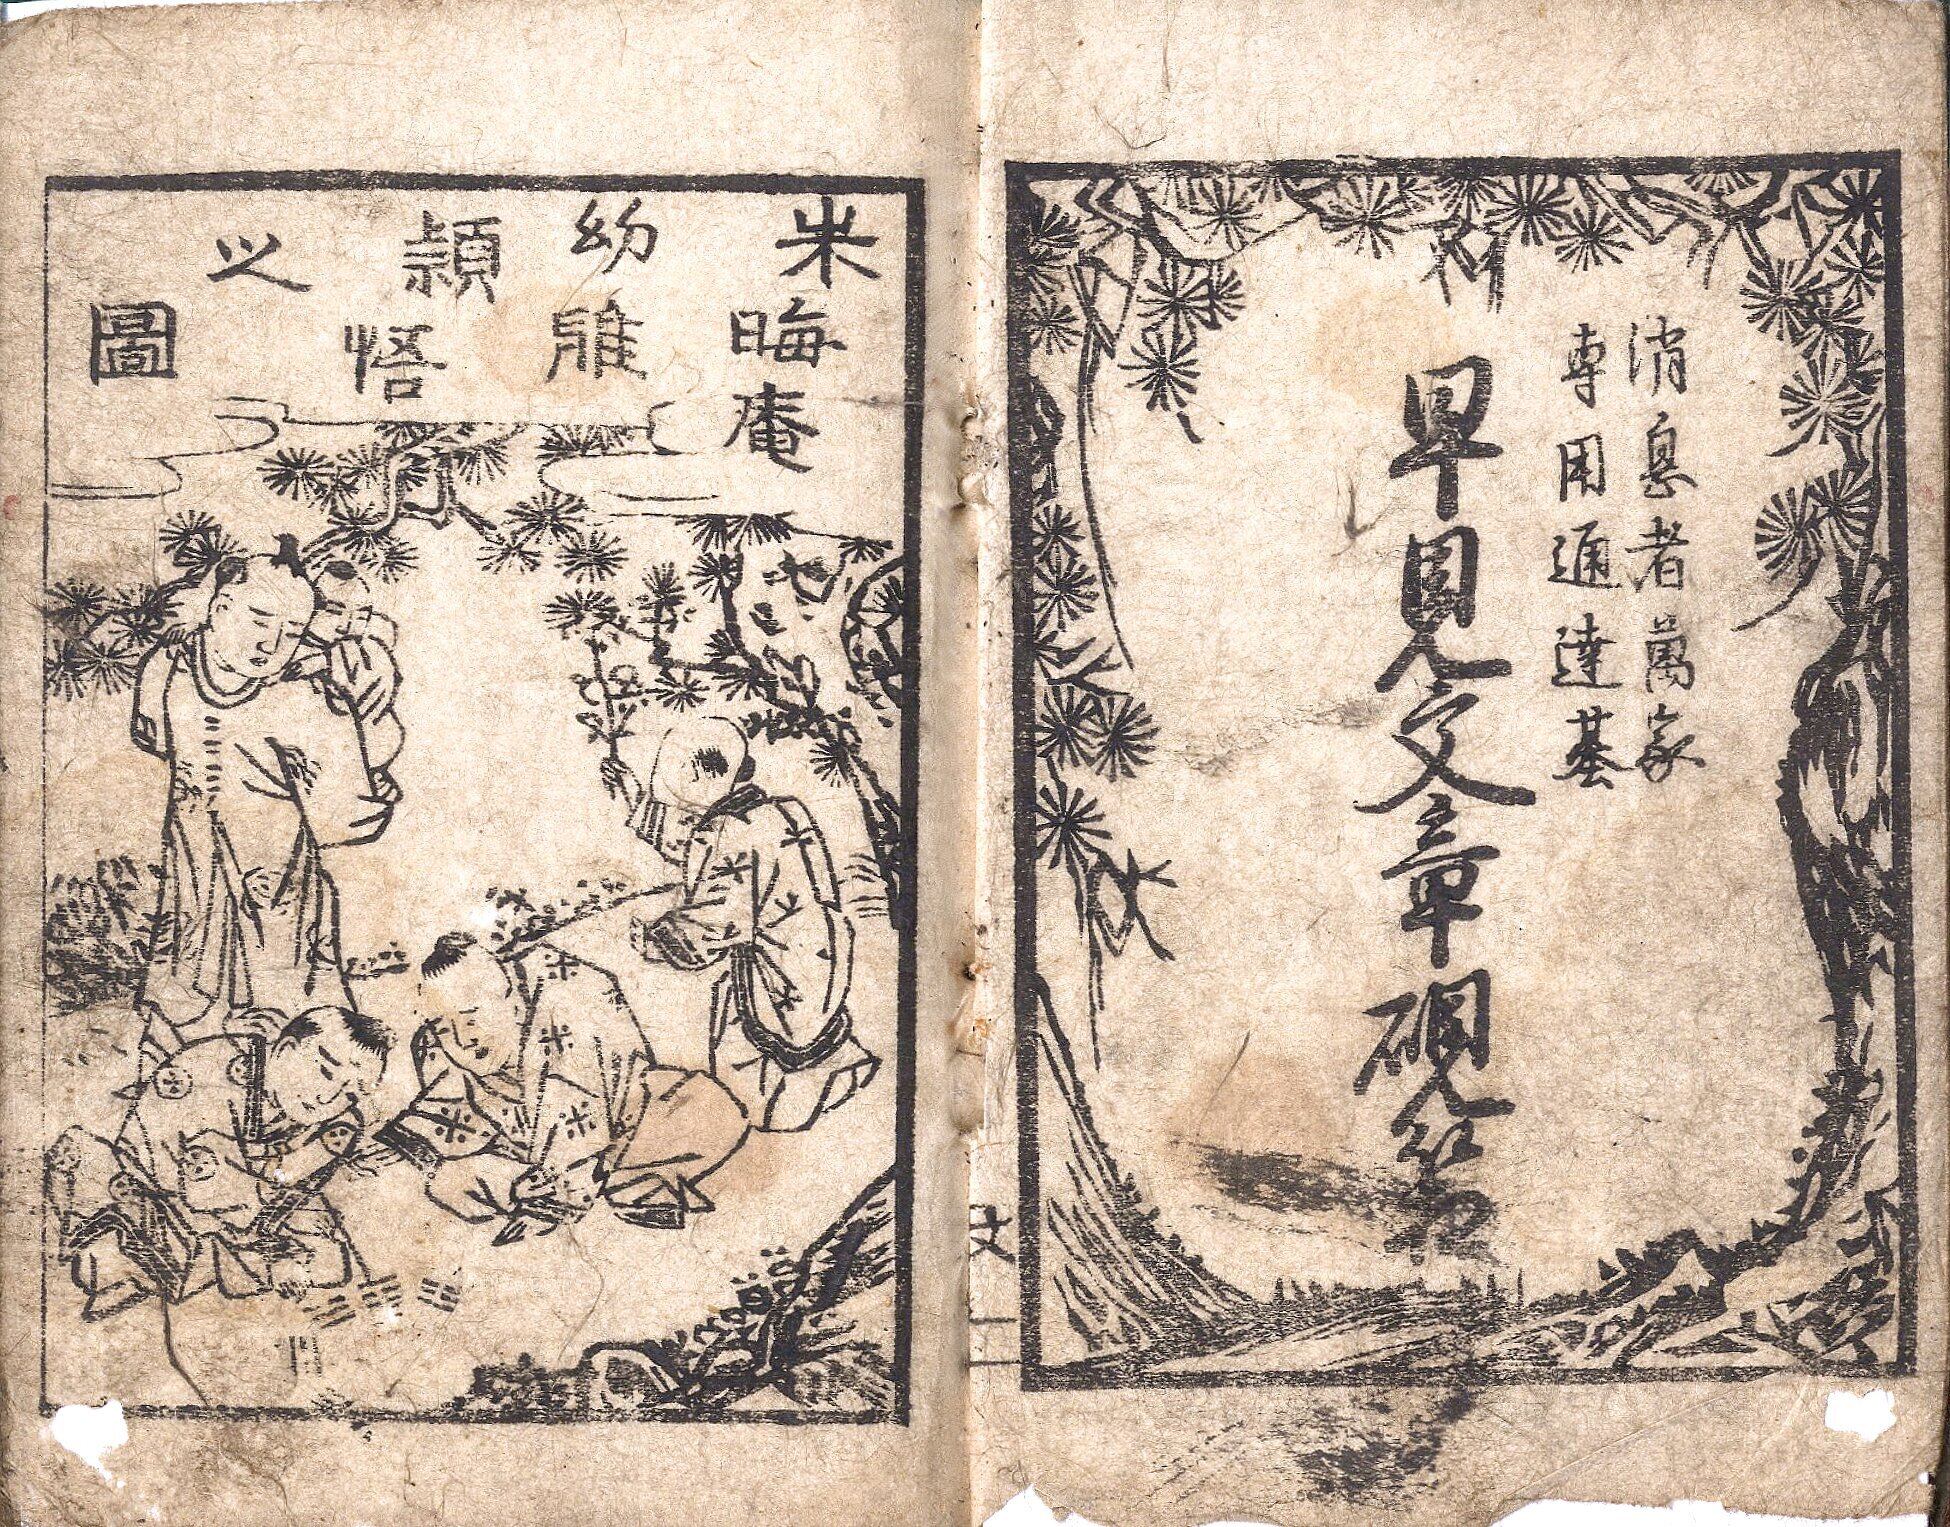 消息者萬家
専用通達基
早見文章硯箱
朱晦庵
幼稚
頴悟
之
圖